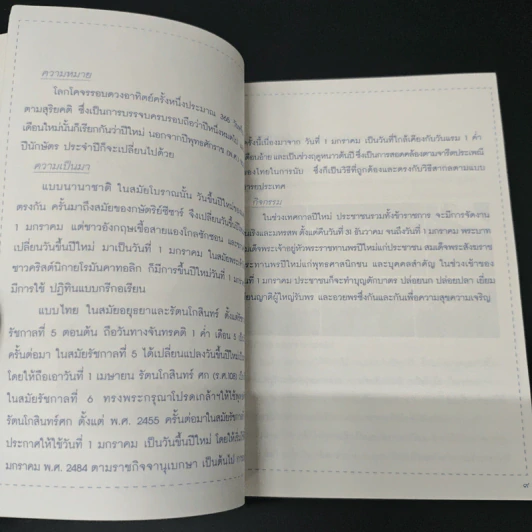 ความหมาย
โลกโคจรรอบดวงอาทิตย์ครั้งหนึ่งประมาณ 365
ตามสุริยคติ ซึ่งเป็นการบรรจบครบรอบถือว่าปีหนึ่งหมด
เดือนใหม่นั้นก็เรียกกันว่าปีใหม่ นอกจากปีพุทธศักราช (พ.ศ.)
ปีนักษัตร ประจำปีก็จะเปลี่ยนไปด้วย
ความเป็นมา
แบบนานาชาติ ในสมัยโบราณนั้น วันขึ้นปีใหม่
ตรงกัน ครั้นมาถึงสมัยของกษัตริย์ซีซาร์ จึงเปลี่ยนวันขึ้นปีใหม่
1 มกราคม แต่ชาวอังกฤษเชื้อสายแองโกลซักซอน
เปลี่ยนวันขึ้นปีใหม่ มาเป็นวันที่ 1 มกราคม ในสมัยพระ
ชาวคริสต์นิกายโรมันคาทอลิก ก็มีการขึ้นปีใหม่วันที่ 1 มกราคม
มีการใช้ ปฏิทินแบบกรีกอเรียน
แบบไทย ในสมัยอยุธยาและรัตนโกสินทร์ ตั้งแต่
รัชกาลที่ 5 ตอนต้น ถือวันทางจันทรคติ 1 ค่ำ เดือน 5
ครั้นต่อมา ในสมัยรัชกาลที่ 5 ได้เปลี่ยนแปลงวันขึ้นปีใหม่
โดยให้ถือเอาวันที่ 1 เมษายน รัตนโกสินทร์ ศก (ร.ศ.108)
ในสมัยรัชกาลที่ 6 ทรงพระกรุณาโปรดเกล้าฯให้ใช้
รัตนโกสินทร์ศก ตั้งแต่ พ.ศ. 2455 ครั้นต่อมาในสมัยรัชกาล
ประกาศให้ใช้วันที่ 1 มกราคม เป็นวันขึ้นปีใหม่ โดยให้
มกราคม พ.ศ. 2484 ตามราชกิจจานุเบกษา เป็นต้นไป
ครั้งนี้เนื่องมาจาก วันที่ 1 มกราคม เป็นวันที่ใกล้เคียงกับวันแรม 1 ค่ำ
เดือนอ้าย และเป็นช่วงฤดูหนาวต้นปี ซึ่งเป็นการสอดคล้องตามจารีตประเพณี
ของไทยในการนับ ซึ่งก็เป็นวิธีที่ถูกต้องและตรงกับวิธีสากลตามแบบ
ประเทศ
กิจกรรม
ในช่วงเทศกาลปีใหม่ ประชาชนรวมทั้งข้าราชการ จะมีการจัดงาน
และมหรสพ ตั้งแต่คืนวันที่ 31 ธันวาคม จนถึงวันที่ 1 มกราคม พระบาท
สมเด็จพระเจ้าอยู่หัวพระราชทานพรปีใหม่แก่ประชาชน สมเด็จพระสังฆราช
ประทานพรปีใหม่แก่พุทธศาสนิกชน และบุคคลสำคัญ ในช่วงเช้าของ
วันที่ 1 มกราคม ประชาชนก็จะทำบุญตักบาตร ปล่อยนก ปล่อยปลา เยี่ยม
เยียนญาติผู้ใหญ่รับพร และอวยพรซึ่งกันและกันเพื่อความสุขความเจริญ